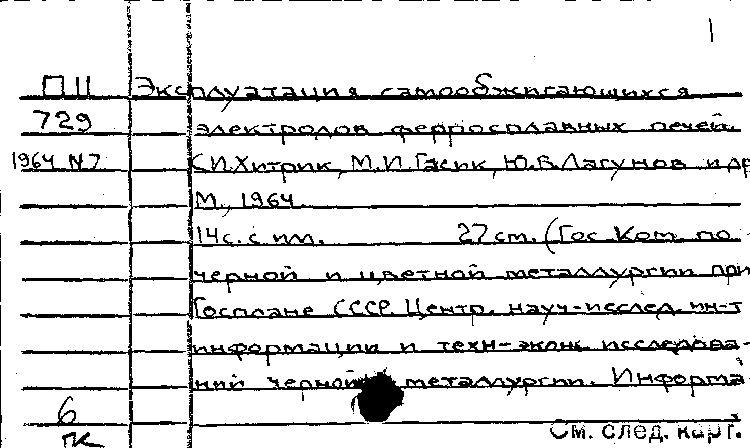 1
П II Эксплуатация самообжигающихся
729 электродов ферросплавных печей.
1964 N7 С.И.Хитрик, М.И.Гасик, Ю.В.Лагунов и др
М., 1964.
14с. с ил. 27 см. (Гос Ком. по
черной и цветной металлургии при
Госплане СССР. Центр. науч-исслед. ин-т
информации и техн-экон. исследова-
ний черной металлургии. Информа
6
См. след. карт.